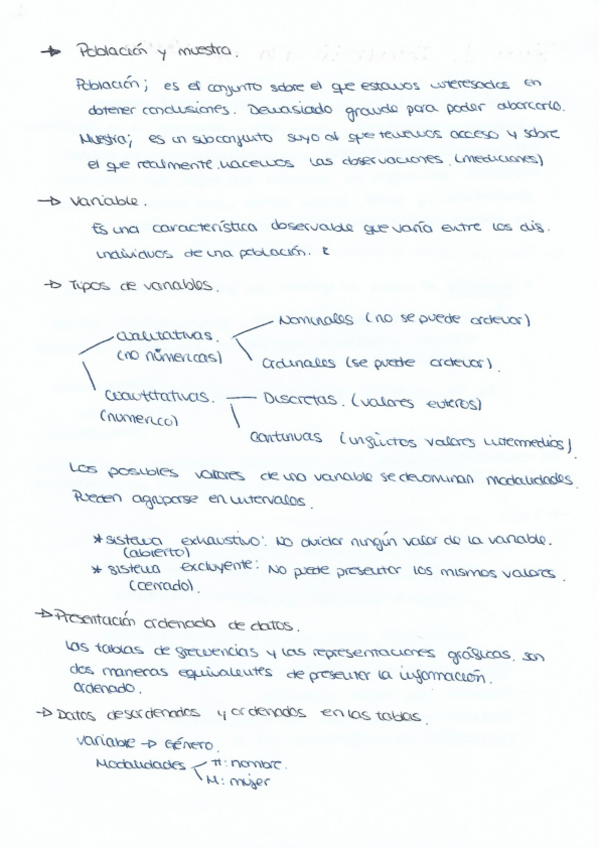 → Población y muestra.
Población; es el conjunto sobre el que estamos interesados en
obtener conclusiones. Demasiado grande para poder abarcarlo.
Muestra; es un subconjunto suyo al que tenemos acceso y sobre
el que realmente hacemos las observaciones. (mediciones)
→ Variable.
Es una característica observable que varía entre los dis.
individuos de una población.
→ Tipos de variables.
Cualitativas. (no númericas)
Nominales (no se puede ordenar)
Ordinales (se puede ordenar).
Cuantitativas. (numerico)
Discretas. (valores enteros)
Continuas (infinitos valores intermedios).
Los posibles valores de una variable se denominan modalidades.
Pueden agruparse en intervalos.
* sistema exhaustivo: No olvidar ningún valor de la variable.
(abierto)
* sistema excluyente: No puede presentar los mismos valores.
(cerrado).
→ Presentación ordenada de datos.
Las tablas de frecuencias y las representaciones gráficas, son
dos maneras equivalentes de presenter la información.
ordenado.
→ Datos desordenados y ordenados en las tablas.
variable → Género.
Modalidades
H: hombre.
M: mujer